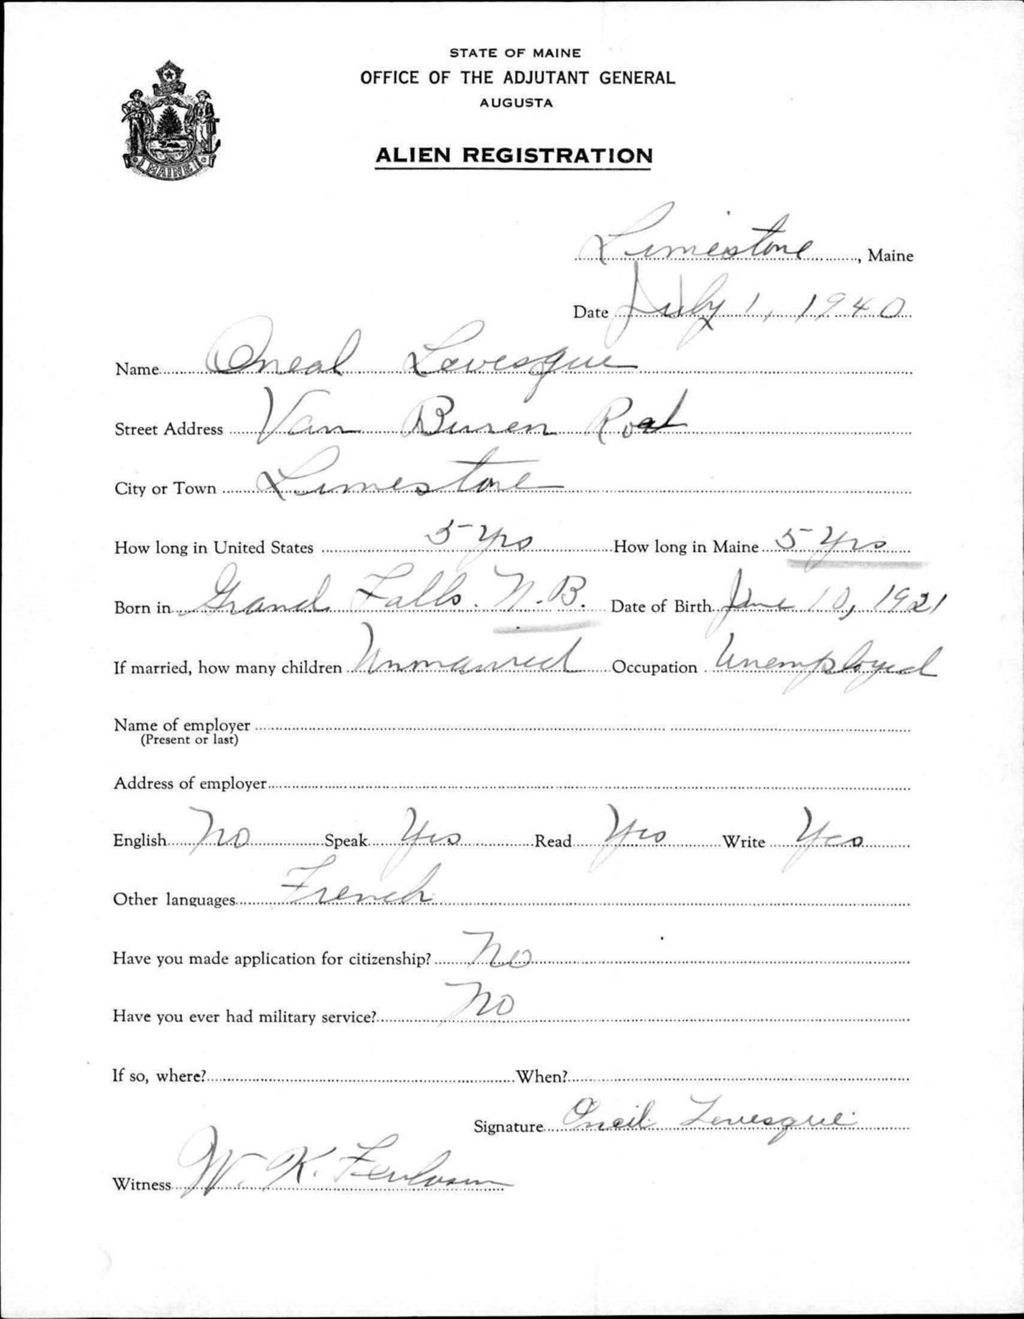 STATE OF MAINE
OFFICE OF THE ADJUTANT GENERAL
AUGUSTA
ALIEN REGISTRATION
MAINE
Limestone, Maine
Date July 1, 1940
Name Oneal Levesque
Street Address Van Buren Road
City or Town Limestone
How long in United States 5 Yrs How long in Maine 5 Yrs
Born in Grand Falls. N.B. Date of Birth June 10, 1921
If married, how many children Unmarried Occupation Unemployed
Name of employer
(Present or last)
Address of employer
English No Speak Yes Read Yes Write Yes
Other languages French
Have you made application for citizenship? No
Have you ever had military service? No
If so, where? When?
Signature Oneil Levesque
Witness W. K.